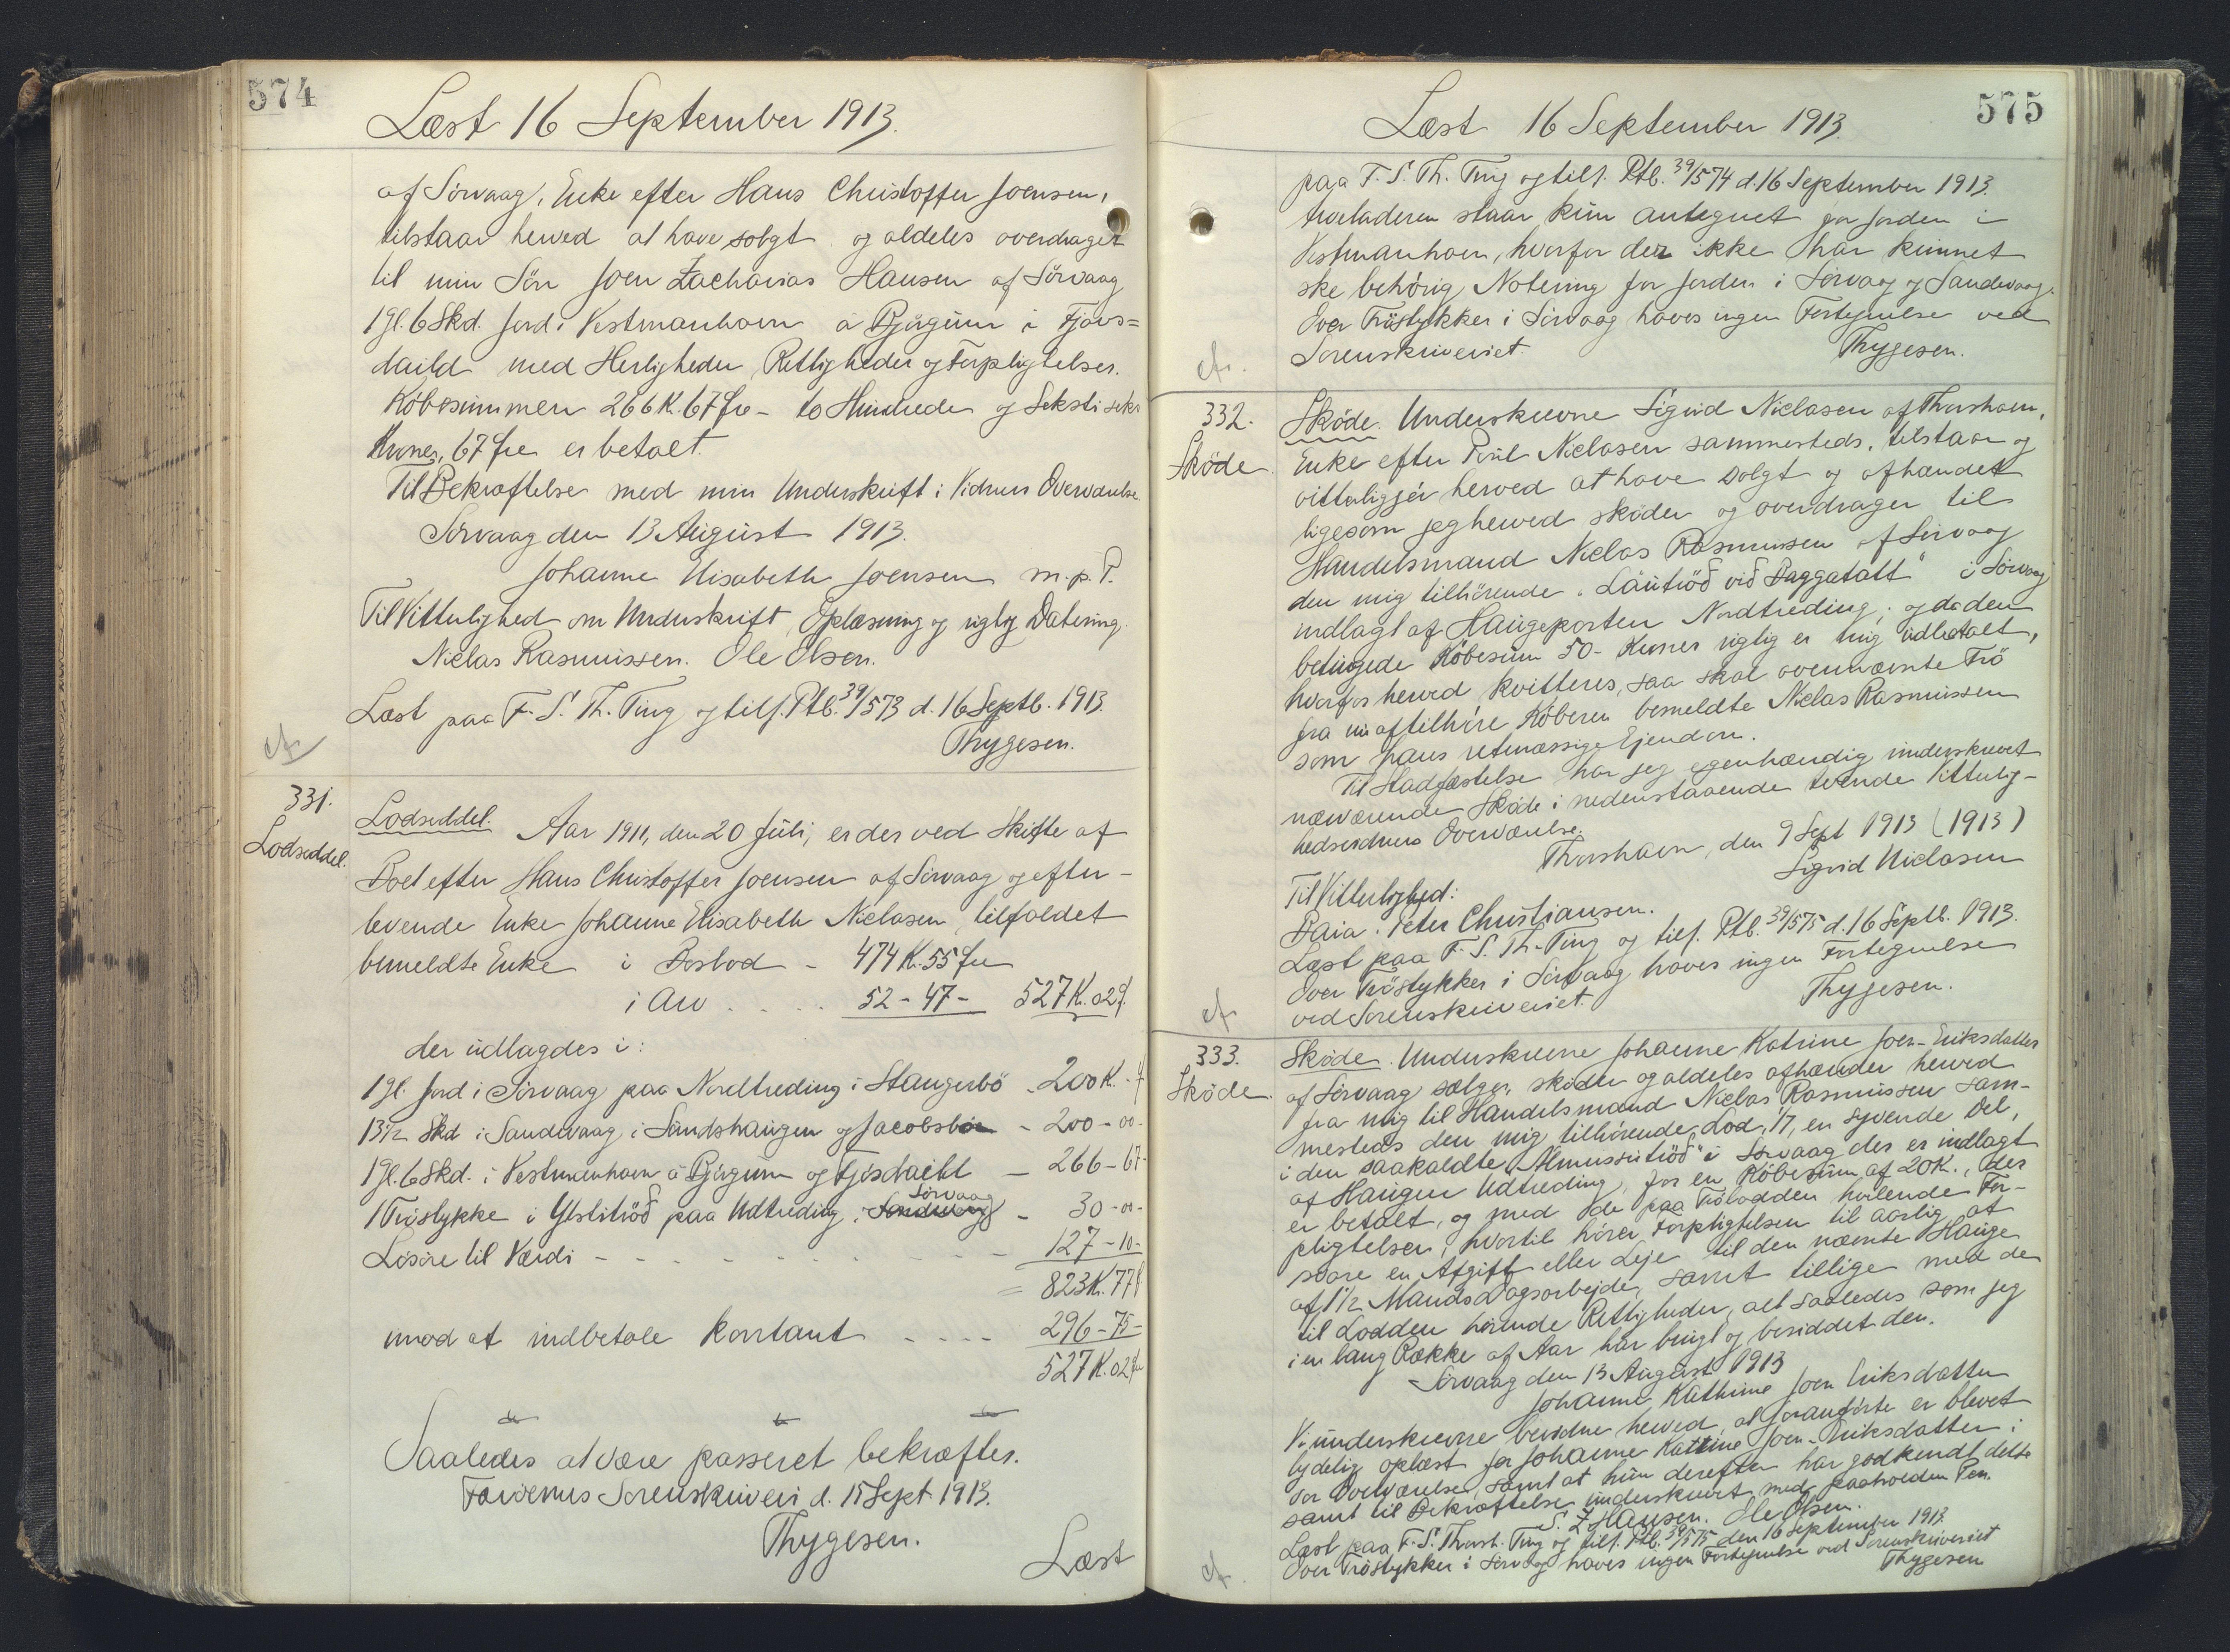 574
Læst 16 September 1913.
af Sörvaag, Enke efter Hans Christoffer Joensen,
tilstaar herved at have solgt og aldeles overdraget
til min Sön Joen Zacharias Hansen af Sörvaag
1 gl. 6 Skd. Jord i Vestmanhavn á Björgum i Fjøvs=
daild med Herligheder, Rettigheder og Forpligtelser.
Köbesummen 266 K. 67 Øre - to Hundrede og Seksti seks
Kroner, 67 Øre er betalt.
Til Bekræftelse med min Underskrift i Vidners Overværelse
Sörvaag den 13 August 1913.
Johanne Elisabeth Joensen m.p.P.
Til Vitterlighed om Underskrift, Oplæsning og rigtig Datering.
Niclas Rasmussen. Ole Olsen.
Læst paa F. S. Th. Ting og tilf. Ptb. 39/573 d. 16 Septb. 1913.
Thygesen.
331.
Lodseddel.
Lodseddel. Aar 1911, den 20 Juli, er der ved Skifte af
Boet efter Hans Christoffer Joensen af Sörvaag og efter-
levende Enke Johanne Elisabeth Niclasen, tilfaldet
bemeldte Enke i Boslod - 474 K. 55 Øre
i Arv . . . . 52 - 47 - 527 K. 02 Ø.
der udlagdes i:
1 gl. Jord i Sörvaag paa Nordtreding i Stangerbö - 200 K.
13 1/2 Skd i Sandevaag i Sandshaugen og Jacobsbön - 200 - 00 -
1 gl. 6 Skd. i Vestmanhavn á Björgum og Fjósdaild - 266 - 67 -
1 Tröstykke i Ytstitröð paa Udtreding i Sandevaag Sörvaag - 30 - 00 -
Lösöre til Værdi - - - - - - - 127 - 10 -
= 823 K. 77 Ø
mod at indbetale kontant . . . . 296 - 75 -
527 K. 02 Øre
Saaledes at være passeret bekræftes.
Færöernes Sorenskriveri d. 15 Sept. 1913.
Thygesen.
Læst
575
Læst 16 September 1913.
paa F. S. Th. Ting og tilf. Ptb. 39/574 d. 16 September 1913.
Arveladeren staar kun antegnet for Jorden i
Vestmanhavn, hvorfor der ikke har kunnet
ske behörig Notering for Jorden i Sörvaag og Sandevaag.
Over Tröstykker i Sörvaag haves ingen Fortegnelse ved
Sorenskriveriet. Thygesen.
332.
Sköde
Sköde. Underskrevne Sigrid Niclasen af Thorshavn,
Enke efter Poul Niclasen sammesteds, tilstaar og
vitterliggjör herved at have solgt og afhændet
ligesom jeg herved sköder og overdrager til
Handelsmand Niclas Rasmussen af Sörvaag
den mig tilhörende "Láutröð við Baggatátt" i Sörvaag
indlagt af Haugeparten Nordtreding; og da den
betingede Köbesum 50 - Kroner rigtig er mig udbetalt,
hvorfor herved kvitteres, saa skal ovennævnte Trö
fra nu af tilhöre Köberen bemeldte Niclas Rasmussen
som hans retmæssige Ejendom.
Til Stadfæstelse har jeg egenhændig underskrevet
nærværende Sköde i nedenstaaende tvende Vitterlig-
hedsvidners Overværelse.
Thorshavn, den 9 Sept 1913 (1913)
Sigrid Niclasen
Til Vitterlighed:
Peter Christiansen.
Læst paa F. S. Th. Ting og tilf. Ptb. 39/575 d. 16 Septb. 1913.
Over Tröstykker i Sörvaag haves ingen Fortegnelse
ved Sorenskriveriet. Thygesen.
333.
Sköde.
Sköde. Underskrevne Johanne Katrine Joen-Eriksdatter
af Sörvaag sælger, sköder og aldeles afhænder herved
fra mig til Handelsmand Niclas Rasmussen sam-
mesteds den mig tilhörende Lod, 1/7, en syvende Del,
i den saakaldte "Almussutröð" i Sörvaag der er indlagt
af Haugen Udtreding, for en Köbesum af 20 K., der
er betalt, og med de paa Trölodden hvilende For-
pligtelser, hvortil hörer Forpligtelsen til aarlig at
svare en Afgift eller Leje til den nævnte Hauge
af 1 1/2 Mands Dagsarbejde, samt tillige med de
til Lodden hörende Rettigheder, alt saaledes som jeg
i en lang Række af Aar har brugt og besiddet den.
Sörvaag den 13 August 1913
Johanne Kathrine Joen Eriksdatter
Vi underskrevne bevidne herved, at foranförte er blevet
lydelig oplæst for Johanne Katrine Joen-Eriksdatter i
vor Overværelse, samt at hun derefter har godkendt dette
samt til Bekræftelse underskrevet med paaholden Pen.
S. Z Hansen. Ole Olsen.
Læst paa F. S. Thorsh. Ting og tilf. Ptb. 39/575 den 16 September 1913.
Over Tröstykker i Sörvaag haves ingen Fortegnelse ved Sorenskriveriet
Thygesen